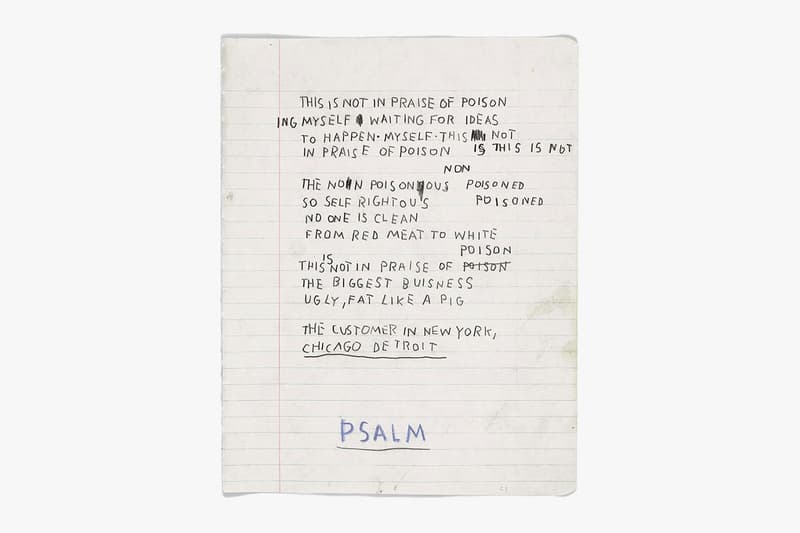 THIS IS NOT IN PRAISE OF POISON
ING MYSELF WAITING FOR IDEAS
TO HAPPEN · MYSELF · THIS NOT
IN PRAISE OF POISON IS THIS IS NOT
NON
THE NON POISONOUS POISONED
SO SELF RIGHTOUS POISONED
NO ONE IS CLEAN
FROM RED MEAT TO WHITE
POISON
IS
THIS NOT IN PRAISE OF POISON
THE BIGGEST BUISNESS
UGLY, FAT LIKE A PIG
THE CUSTOMER IN NEW YORK,
CHICAGO DETROIT
PSALM